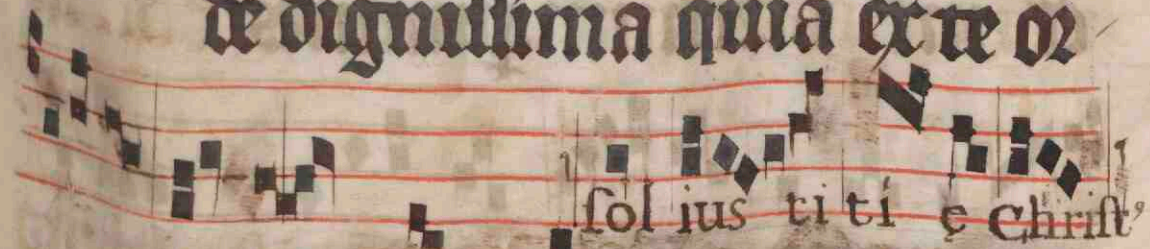 de dignissima quia ex te or
sol ius ti ti e Christ⁹